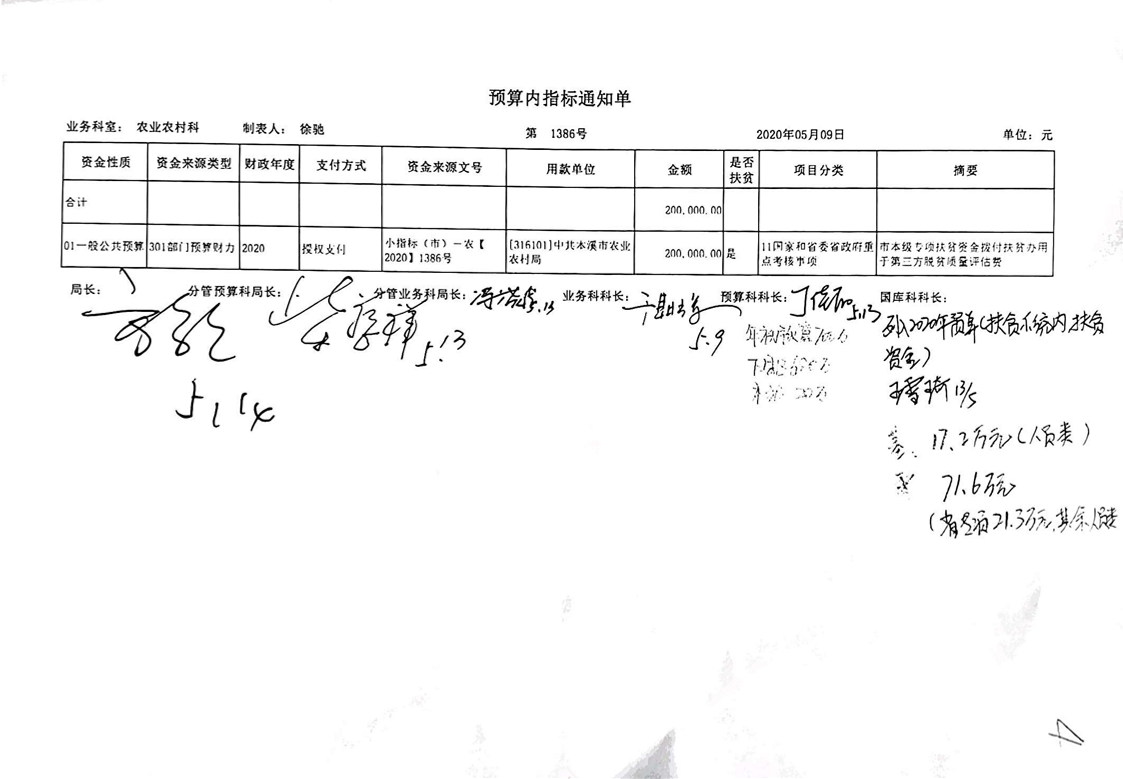 预算内指标通知单
业务科室: 农业农村科 制表人: 徐驰 第 1386号 2020年05月09日 单位: 元
资金性质 资金来源类型 财政年度 支付方式 资金来源文号 用款单位 金额 是否扶贫 项目分类 摘要
合计 200,000.00
01一般公共预算 301部门预算财力 2020 授权支付 小指标(市)-农【2020】1386号 [316101]中共本溪市农业农村局 200,000.00 是 11国家和省委省政府重点考核事项 市本级专项扶贫资金拨付扶贫办用于第三方脱贫质量评估费
局长: 分管预算科局长: 分管业务科局长: 业务科科长: 预算科科长: 国库科科长:
5.13
5.9
5.13
5.14
列入2020年 (扶贫系统内,扶贫
资金)
13/5
17.2万元(人员类)
71.6万元
21.3万元,其余人员类
4